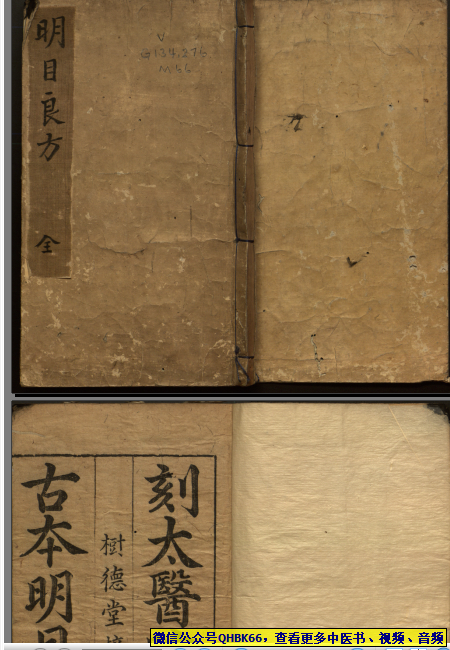 明目良方 全
V
G134.275
M66
刻太醫
樹德堂
古本明目
微信公众号QHBK66，查看更多中医书、视频、音频